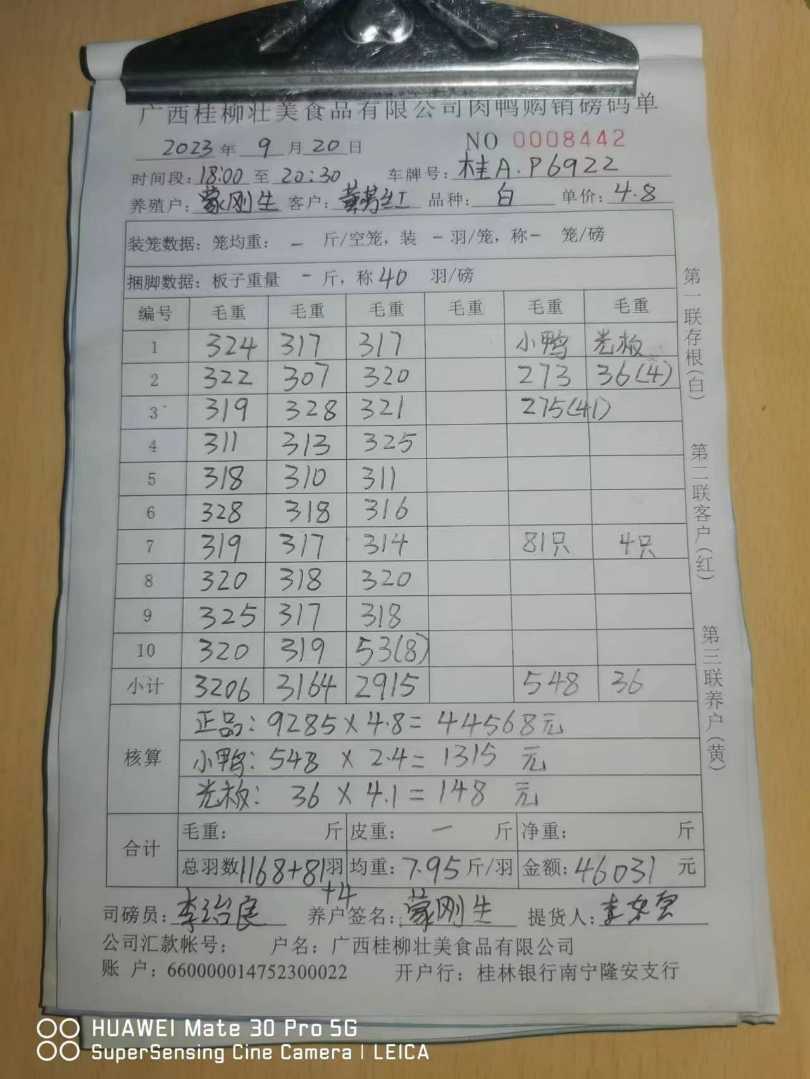 广西桂柳壮美食品有限公司肉鸭购销磅码单
2023年 9 月 20 日 NO 0008442
时间段: 18:00 至 20:30 车牌号: 桂A·P6922
养殖户: 蒙刚生 客户: 品种: 白 单价: 4.8
装笼数据: 笼均重: - 斤/空笼, 装 - 羽/笼, 称 - 笼/磅
捆脚数据: 板子重量 - 斤, 称 40 羽/磅
编号 毛重 毛重 毛重 毛重 毛重 毛重
1 324 317 317 小鸭 光板
2 322 307 320 273 36(4)
3 319 328 321 275(41)
4 311 313 325
5 318 310 311
6 328 318 316
7 319 317 314 81只 4只
8 320 318 320
9 325 317 318
10 320 319 53(8)
小计 3206 3164 2915 548 36
核算
正品: 9285 × 4.8 = 44568元
小鸭: 548 × 2.4 = 1315 元
光板: 36 × 4.1 = 148 元
合计
毛重: 斤 皮重: 一 斤 净重: 斤
总羽数1168+81羽 均重: 7.95 斤/羽 金额: 46031 元
+4
司磅员: 李治良 养户签名: 蒙刚生 提货人:
公司汇款帐号: 户名: 广西桂柳壮美食品有限公司
账 户: 660000014752300022 开户行: 桂林银行南宁隆安支行
第一联存根(白)
第二联客户(红)
第三联养户(黄)
HUAWEI Mate 30 Pro 5G
SuperSensing Cine Camera | LEICA